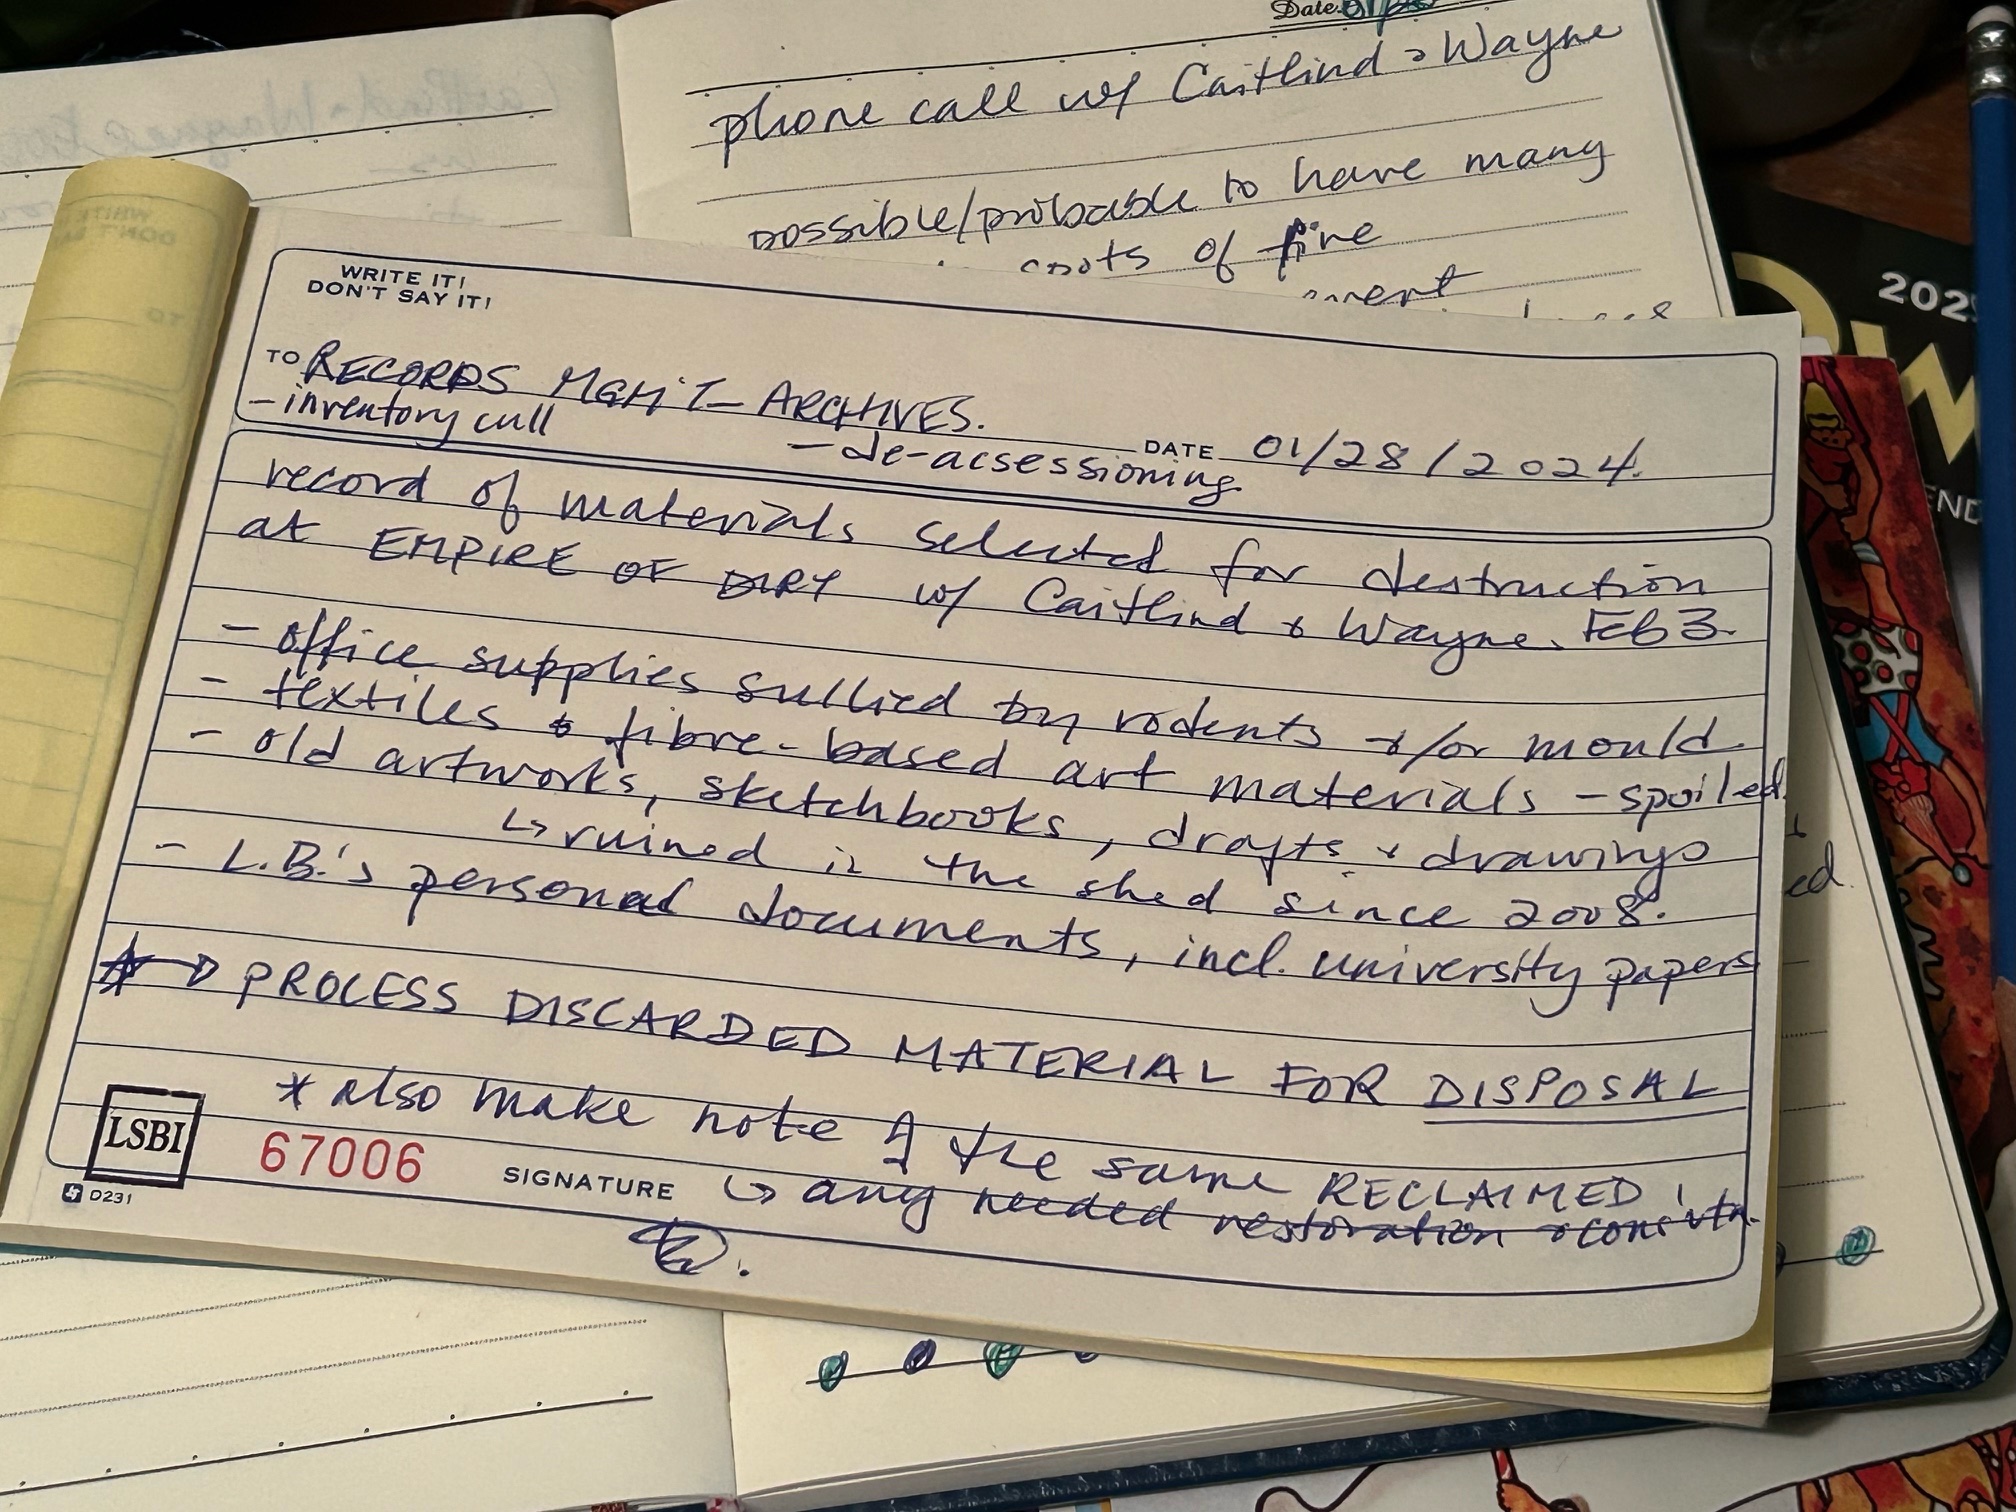 Date
phone call w/ Caitlind & Wayne
possible/probable to have many
spots of fire
WRITE IT!
DON'T SAY IT!
TO RECORDS MGM'T - ARCHIVES.
- inventory cull
- de-acsessioning
DATE 01/28/2024.
record of materials selected for destruction
at EMPIRE OF DIRT w/ Caitlind & Wayne. Feb 3.
- office supplies sullied by rodents &/or mould
- textiles & fibre-based art materials - spoiled.
- old artworks, sketchbooks, drafts & drawings
↳ ruined in the shed since 2008.
- L.B.'s personal documents, incl. university papers
PROCESS DISCARDED MATERIAL FOR DISPOSAL
* also make note of the same RECLAIMED;
LSBI
67006
SIGNATURE
↳ any needed restoration &
D231
202
END
ed.